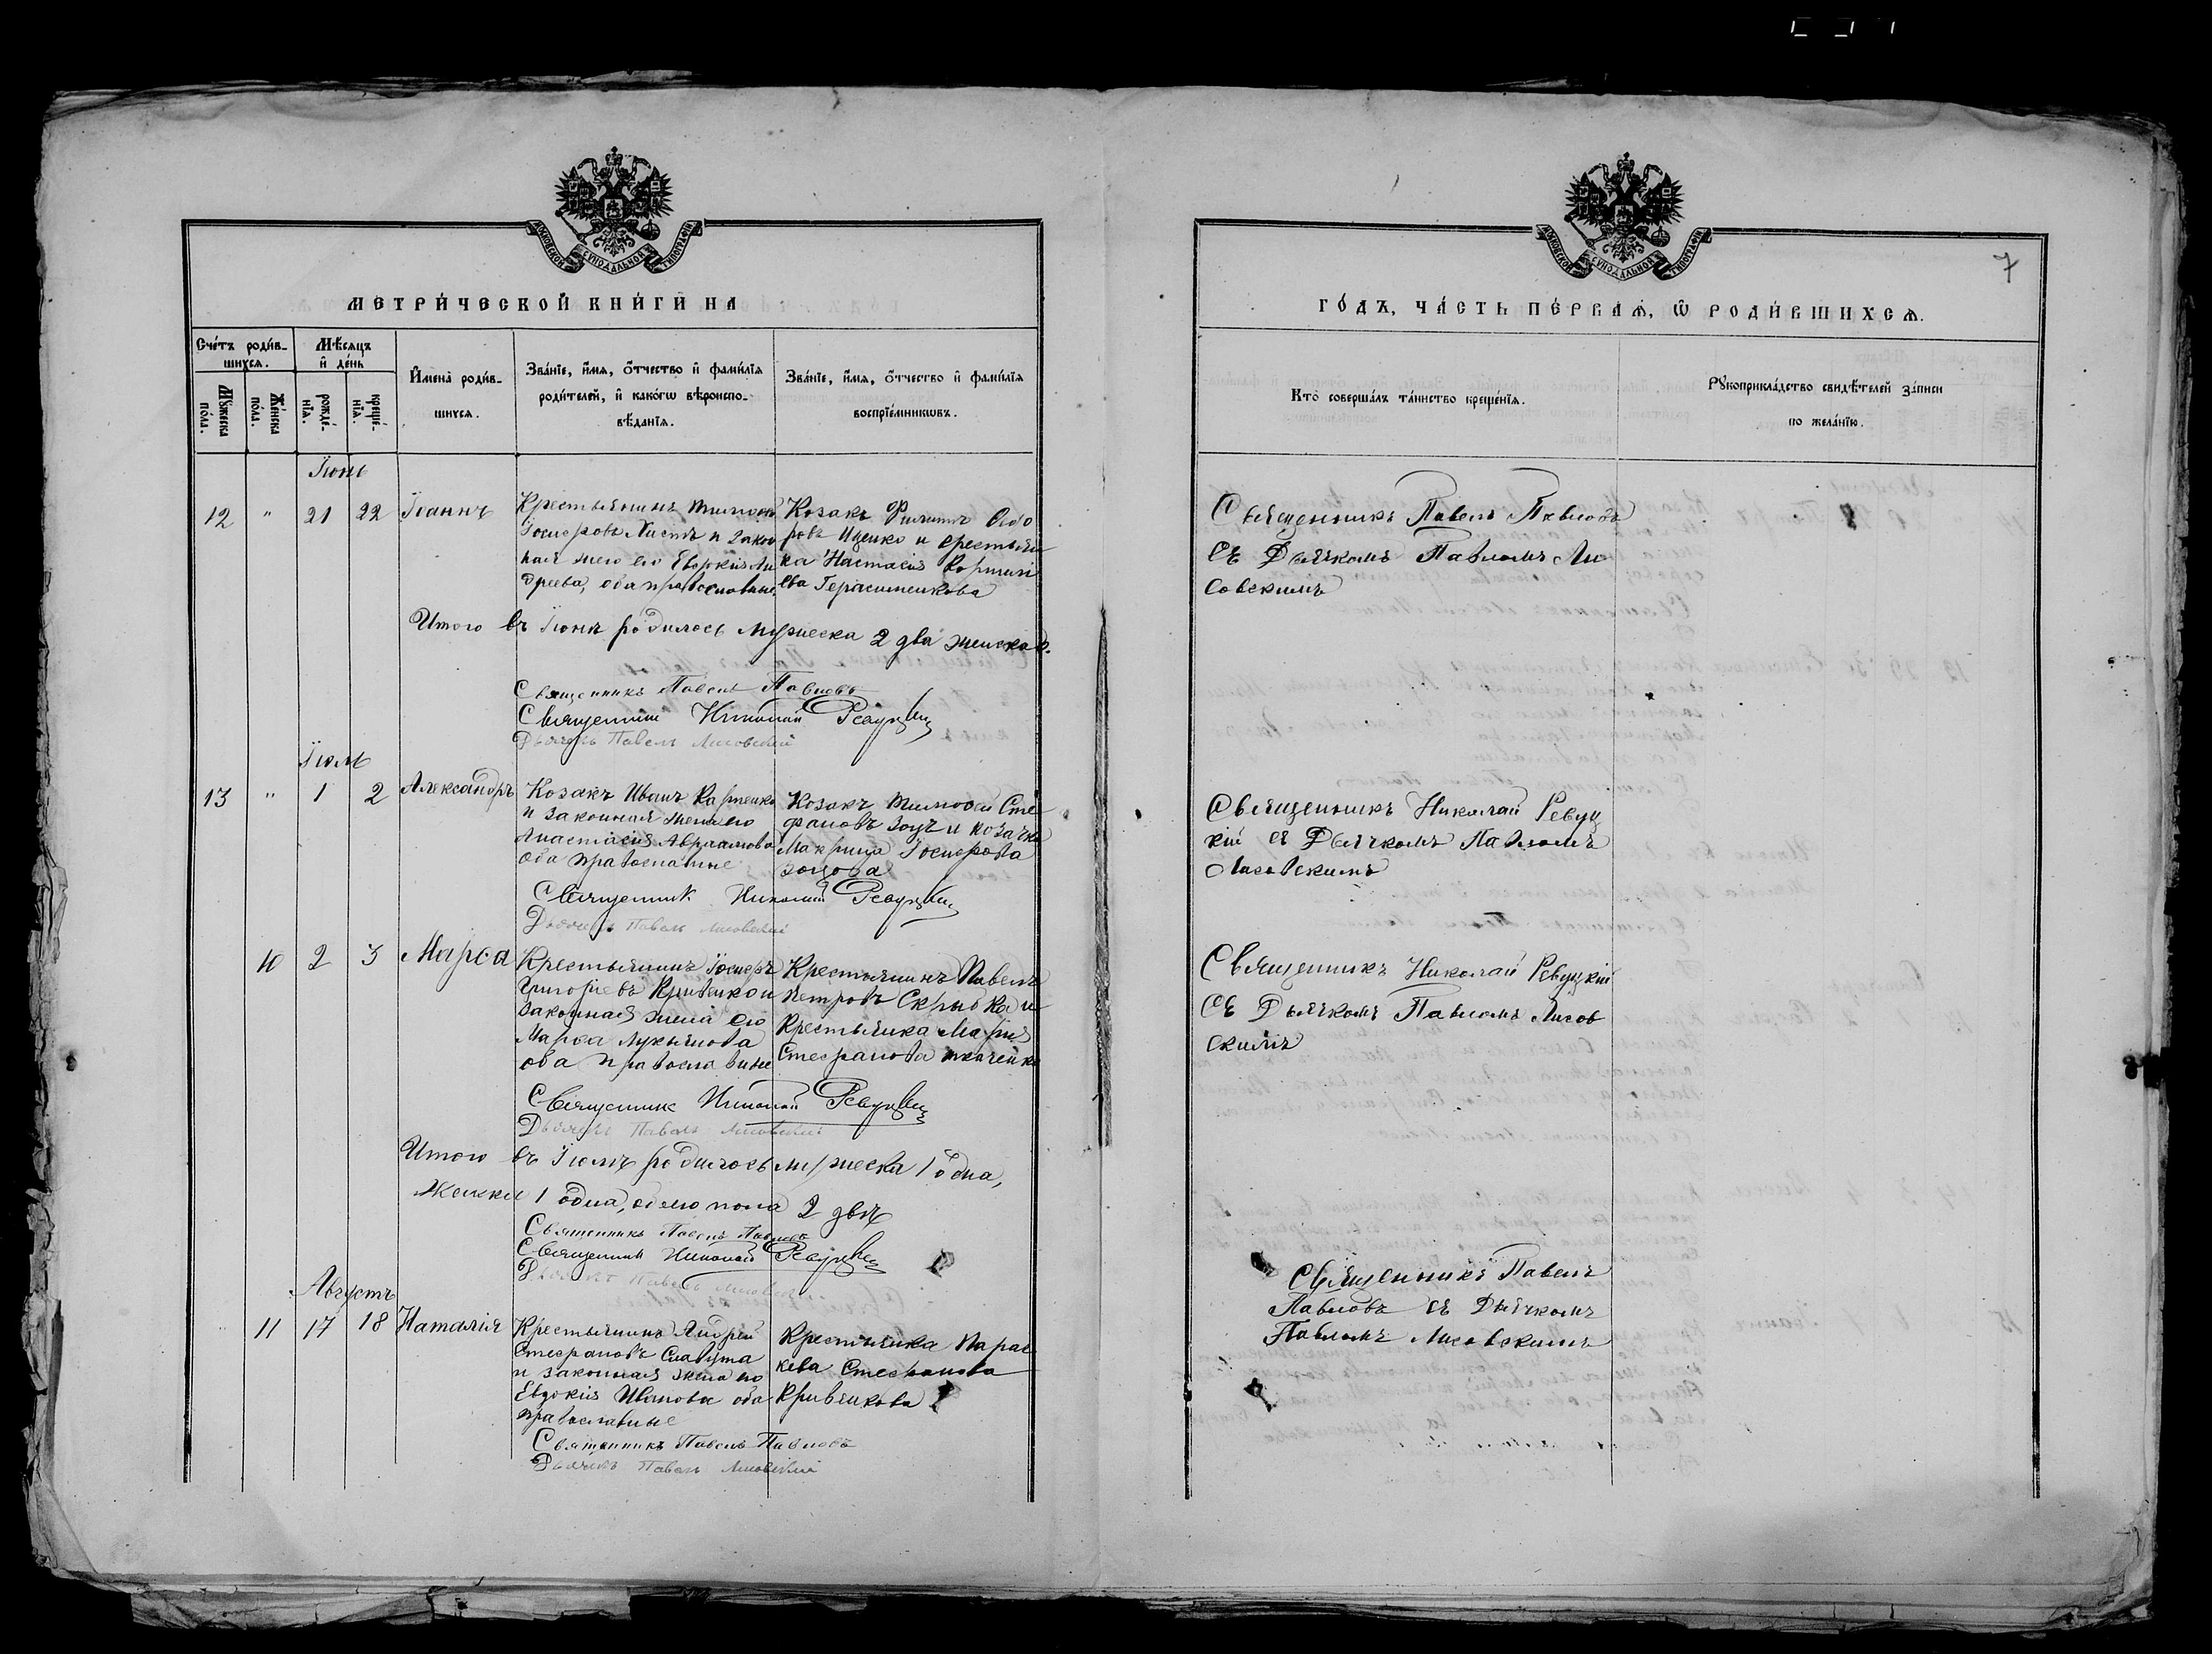 МОСКОВСКОЙ СУНОДАЛЬНОЙ ТИПОГРАФІИ
МЕТРИ́ЧЕСКОЙ КНИ́ГИ НА
Сче́тъ роди́в-
шихся.
Мꙋ́жеска по́ла.
Же́нска по́ла.
Мѣ́сяцъ
и҆ де́нь
рожде́-
нїѧ.
креще́-
нїѧ.
И҆мена̀ роди́в-
шихся.
Зва́нїе, и҆́мѧ, ѻ҆́тчество и҆ фами́лїѧ
роди́телей, и҆ како́гѡ вѣроиспо-
вѣ́данїѧ.
Зва́нїе, и҆́мѧ, ѻ҆́тчество и҆ фами́лїѧ
воспрїе́мникѡвъ.
Іюнь
12 " 21 22 Іоаннъ
Крестьянинъ Тимофей
Іосифовъ Листъ и закон
ная жена его Евдокія Ан
дреева, оба православные.
Козакъ Филиппъ Федо
ровъ Иценко и крестьян
ка Настасія
ева Герасименкова
Итого въ Іюнѣ родилось мужеска 2 два женска 0.
Священникъ Павелъ Павловъ
Священникъ Николай Ревуцкій
Дьячекъ Павелъ Лисовскій
Іюль
13 " 1 2 Александръ
Козакъ Иванъ Карпенко
и законная жена его
Анастасія Авраамова
оба православные
Козакъ Тимофей Сте
фановъ Зоцъ и козачка
Макрина Іосифова
Зоцова
Священникъ Николай Ревуцкій
Дьячекъ Павелъ Лисовскій
10 2 3 Марѳа
Крестьянинъ Іосифъ
Григорьевъ Кривенко и
законная жена его
Марѳа Лукьянова
оба православные
Крестьянинъ Павелъ
Петровъ Скрыбка и
крестьянка Марія
Стефанова Ткаченко
Священникъ Николай Ревуцкій
Дьячекъ Павелъ Лисовскій
Итого въ Іюлѣ родилось мужеска 1 одна,
Женска 1 одна, обоего пола 2 двѣ
Священникъ Павелъ Павловъ
Священникъ Николай Ревуцкій
Дьячекъ Павелъ Лисовскій
Августъ
11 17 18 Наталія
Крестьянинъ Андрей
Стефановъ Славута
и законная жена его
Евдокія Иванова оба
православные
Крестьянка Парас
кева Стефанова
Кривенкова
Священникъ Павелъ Павловъ
Дьячекъ Павелъ Лисовскій
7
МОСКОВСКОЙ СУНОДАЛЬНОЙ ТИПОГРАФІИ
ГО́ДЪ, ЧА́СТЬ ПЕ́РВАѦ, Ѡ҆ РОДИ́ВШИХСѦ.
Кто̀ соверша́лъ та́инство креще́нїѧ.
Рꙋкоприкла́дство свидѣ́телей за́писи
по жела́нїю.
Священникъ Павелъ Павловъ
съ Дьячкомъ Павломъ Ли
совскимъ
Священникъ Николай Ревуц
кій съ Дьячкомъ Павломъ
Лисовскимъ
Священникъ Николай Ревуцкій
съ Дьячкомъ Павломъ Лисов
скимъ
Священникъ Павелъ
Павловъ съ Дьячкомъ
Павломъ Лисовскимъ